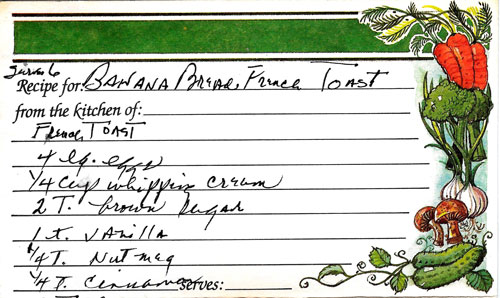 Serves 6
Recipe for: BANANA BREAD French TOAST
from the kitchen of:
French TOAST
4 lg. eggs
1/4 cup whipping cream
2 T. brown sugar
1 t. vanilla
1/4 T. Nutmeg
1/4 T. Cinnamon serves: